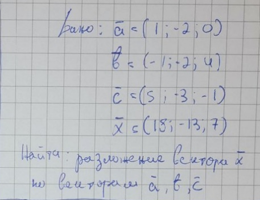 Дано: ā = (1; -2; 0)
b̄ = (-1; -2; 4)
c̄ = (5; -3; -1)
x̄ = (13; -13, 7)
Найти: разложение вектора x̄
по векторам ā, b̄, c̄